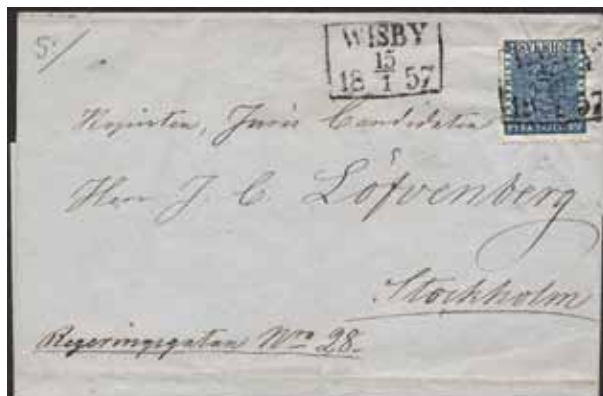 5.
WISBY
15
18 1 57
SVERIGE
18 1 57
Kopisten, Juris Candidaten
Herr J. C. Löfvenberg
Stockholm
Regeringsgatan Nro 28.